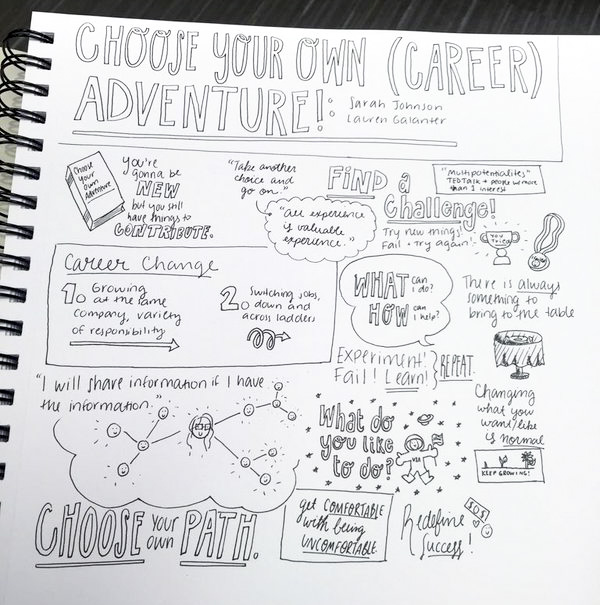 CHOOSE YOUR OWN (CAREER)
ADVENTURE!:
Sarah Johnson
Lauren Galanter
Choose
Your
Own
Adventure
you're
gonna be
NEW
but you still
have things to
CONTRIBUTE.
"Take another
choice and
go on."
"all experience
is valuable
experience."
FIND a
Challenge!
Try new things!
Fail + try again!
"Multipotentialites"
TEDTalk + people w more
than 1 interest
YOU
TRIED
Career Change
1. Growing
at the same
company, variety
of responsibility
2. Switching jobs,
down and
across ladders
WHAT can
i do?
HOW can
i help?
There is always
something to
bring to the table
Experiment!
Fail! Learn!
REPEAT.
"I will share information if I have
the information."
What do
you like
to do?
Changing
what you
want/like
is normal
KEEP GROWING!
CHOOSE your
own PATH.
get COMFORTABLE
with being
UNCOMFORTABLE.
Redefine
Success!